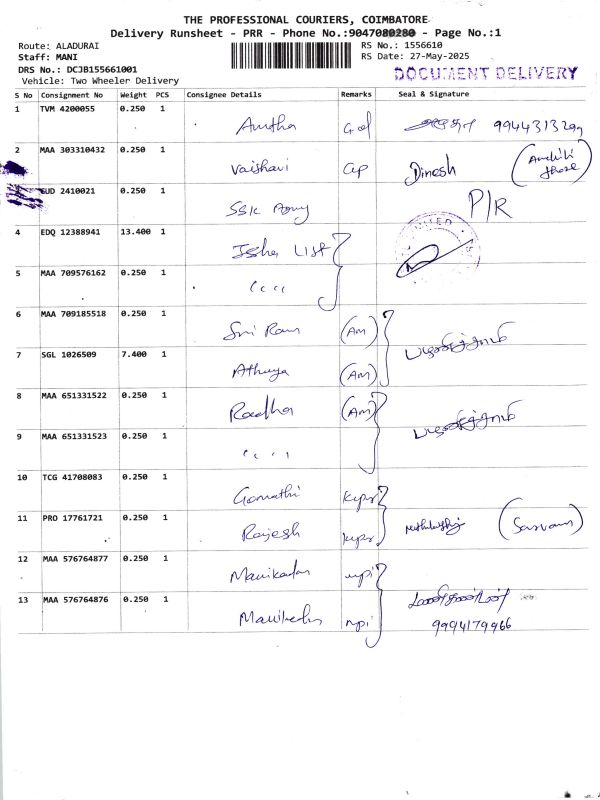 THE PROFESSIONAL COURIERS, COIMBATORE
Delivery Runsheet - PRR - Phone No.:9047080280 - Page No.:1
Route: ALADURAI
RS No.: 1556610
Staff: MANI
RS Date: 27-May-2025
DRS No.: DCJB155661001
Vehicle: Two Wheeler Delivery
DOCUMENT DELIVERY
S No Consignment No Weight PCS Consignee Details Remarks Seal & Signature
1 TVM 4200055 0.250 1 Amtha
2 MAA 303310432 0.250 1 Vaishavi Dinesh
3 GUD 2410021 0.250 1 SSK P/R
4 EDQ 12388941 13.400 1 Isha List
5 MAA 709576162 0.250 1 " "
6 MAA 709185518 0.250 1 Sri Ram (AM)
7 SGL 1026509 7.400 1 Athaya (AM)
8 MAA 651331522 0.250 1 Radha (AM)
9 MAA 651331523 0.250 1 " "
10 TCG 41708083 0.250 1 Gomathi kvpr
11 PRO 17761721 0.250 1 Rajesh kvpr (Sarvam)
12 MAA 576764877 0.250 1 Manikadan mpi
13 MAA 576764876 0.250 1 mpi
9994179966